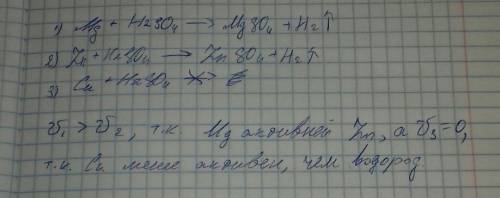 1) Mg + H2SO4 → MgSO4 + H2↑
2) Zn + H2SO4 → ZnSO4 + H2↑
3) Cu + H2SO4 ↛
υ1 > υ2, т.к. Mg активней Zn, а υ3=0,
т.к. Cu менее активен, чем водород